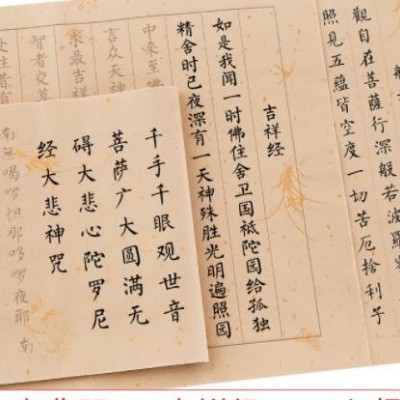 觀自在菩薩行深般若波羅
照見五蘊皆空度一切苦厄捨利子
吉祥经
如是我闻一时佛住舍卫国祗陀园给孤独
精舍时已夜深有一天神殊胜光明遍照园
中来至佛
言众天神
求最吉祥
智者交
千手千眼观世音
菩萨广大圆满无
碍大悲心陀罗尼
经大悲神咒
南無喝啰怛那哆啰夜耶 南